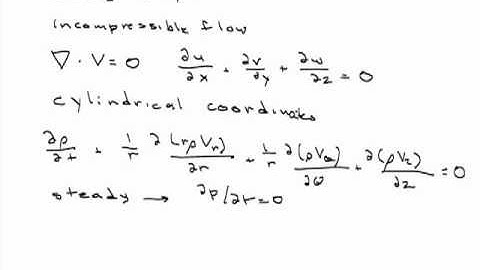 incompressible flow
∇ · V = 0   ∂u/∂x + ∂v/∂y + ∂w/∂z = 0
cylindrical coordinates
∂ρ/∂t + 1/r ∂(rρV_r)/∂r + 1/r ∂(ρV_θ)/∂θ + ∂(ρV_z)/∂z = 0
steady → ∂ρ/∂t = 0